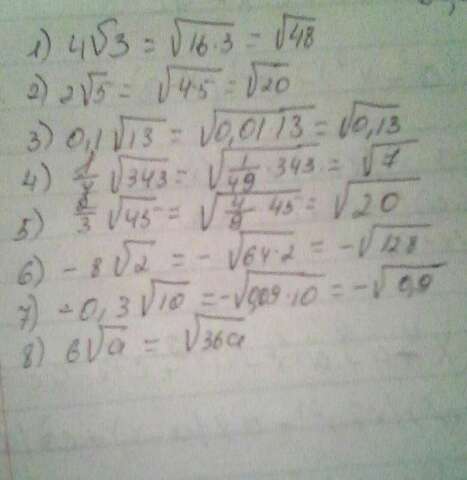 1) 4√3 = √16·3 = √48
2) 2√5 = √4·5 = √20
3) 0,1√13 = √0,01·13 = √0,13
4) 1/7 √343 = √1/49 · 343 = √7
5) 2/3 √45 = √4/9 · 45 = √20
6) -8√2 = -√64·2 = -√128
7) -0,3√10 = -√0,09·10 = -√0,9
8) 6√a = √36a